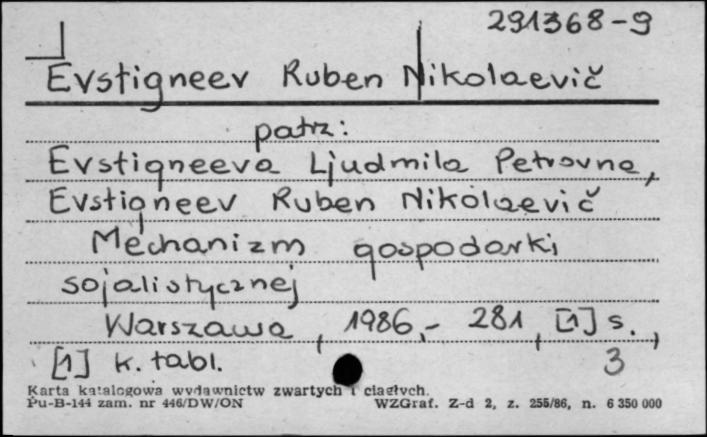 291368-9
Evstigneev Ruben Nikolaevič
patrz:
Evstigneeva Ljudmila Petrovna,
Evstigneev Ruben Nikolaevič
Mechanizm gospodarki
sojalistycznej
Warszawa, 1986.- 281, [1] s.,
[1] k. tabl. 3
Karta katalogowa wydawnictw zwartych i ciągłych.
Pu-B-144 zam. nr 446/DW/ON WZGraf. Z-d 2, z. 255/86, n. 6 350 000